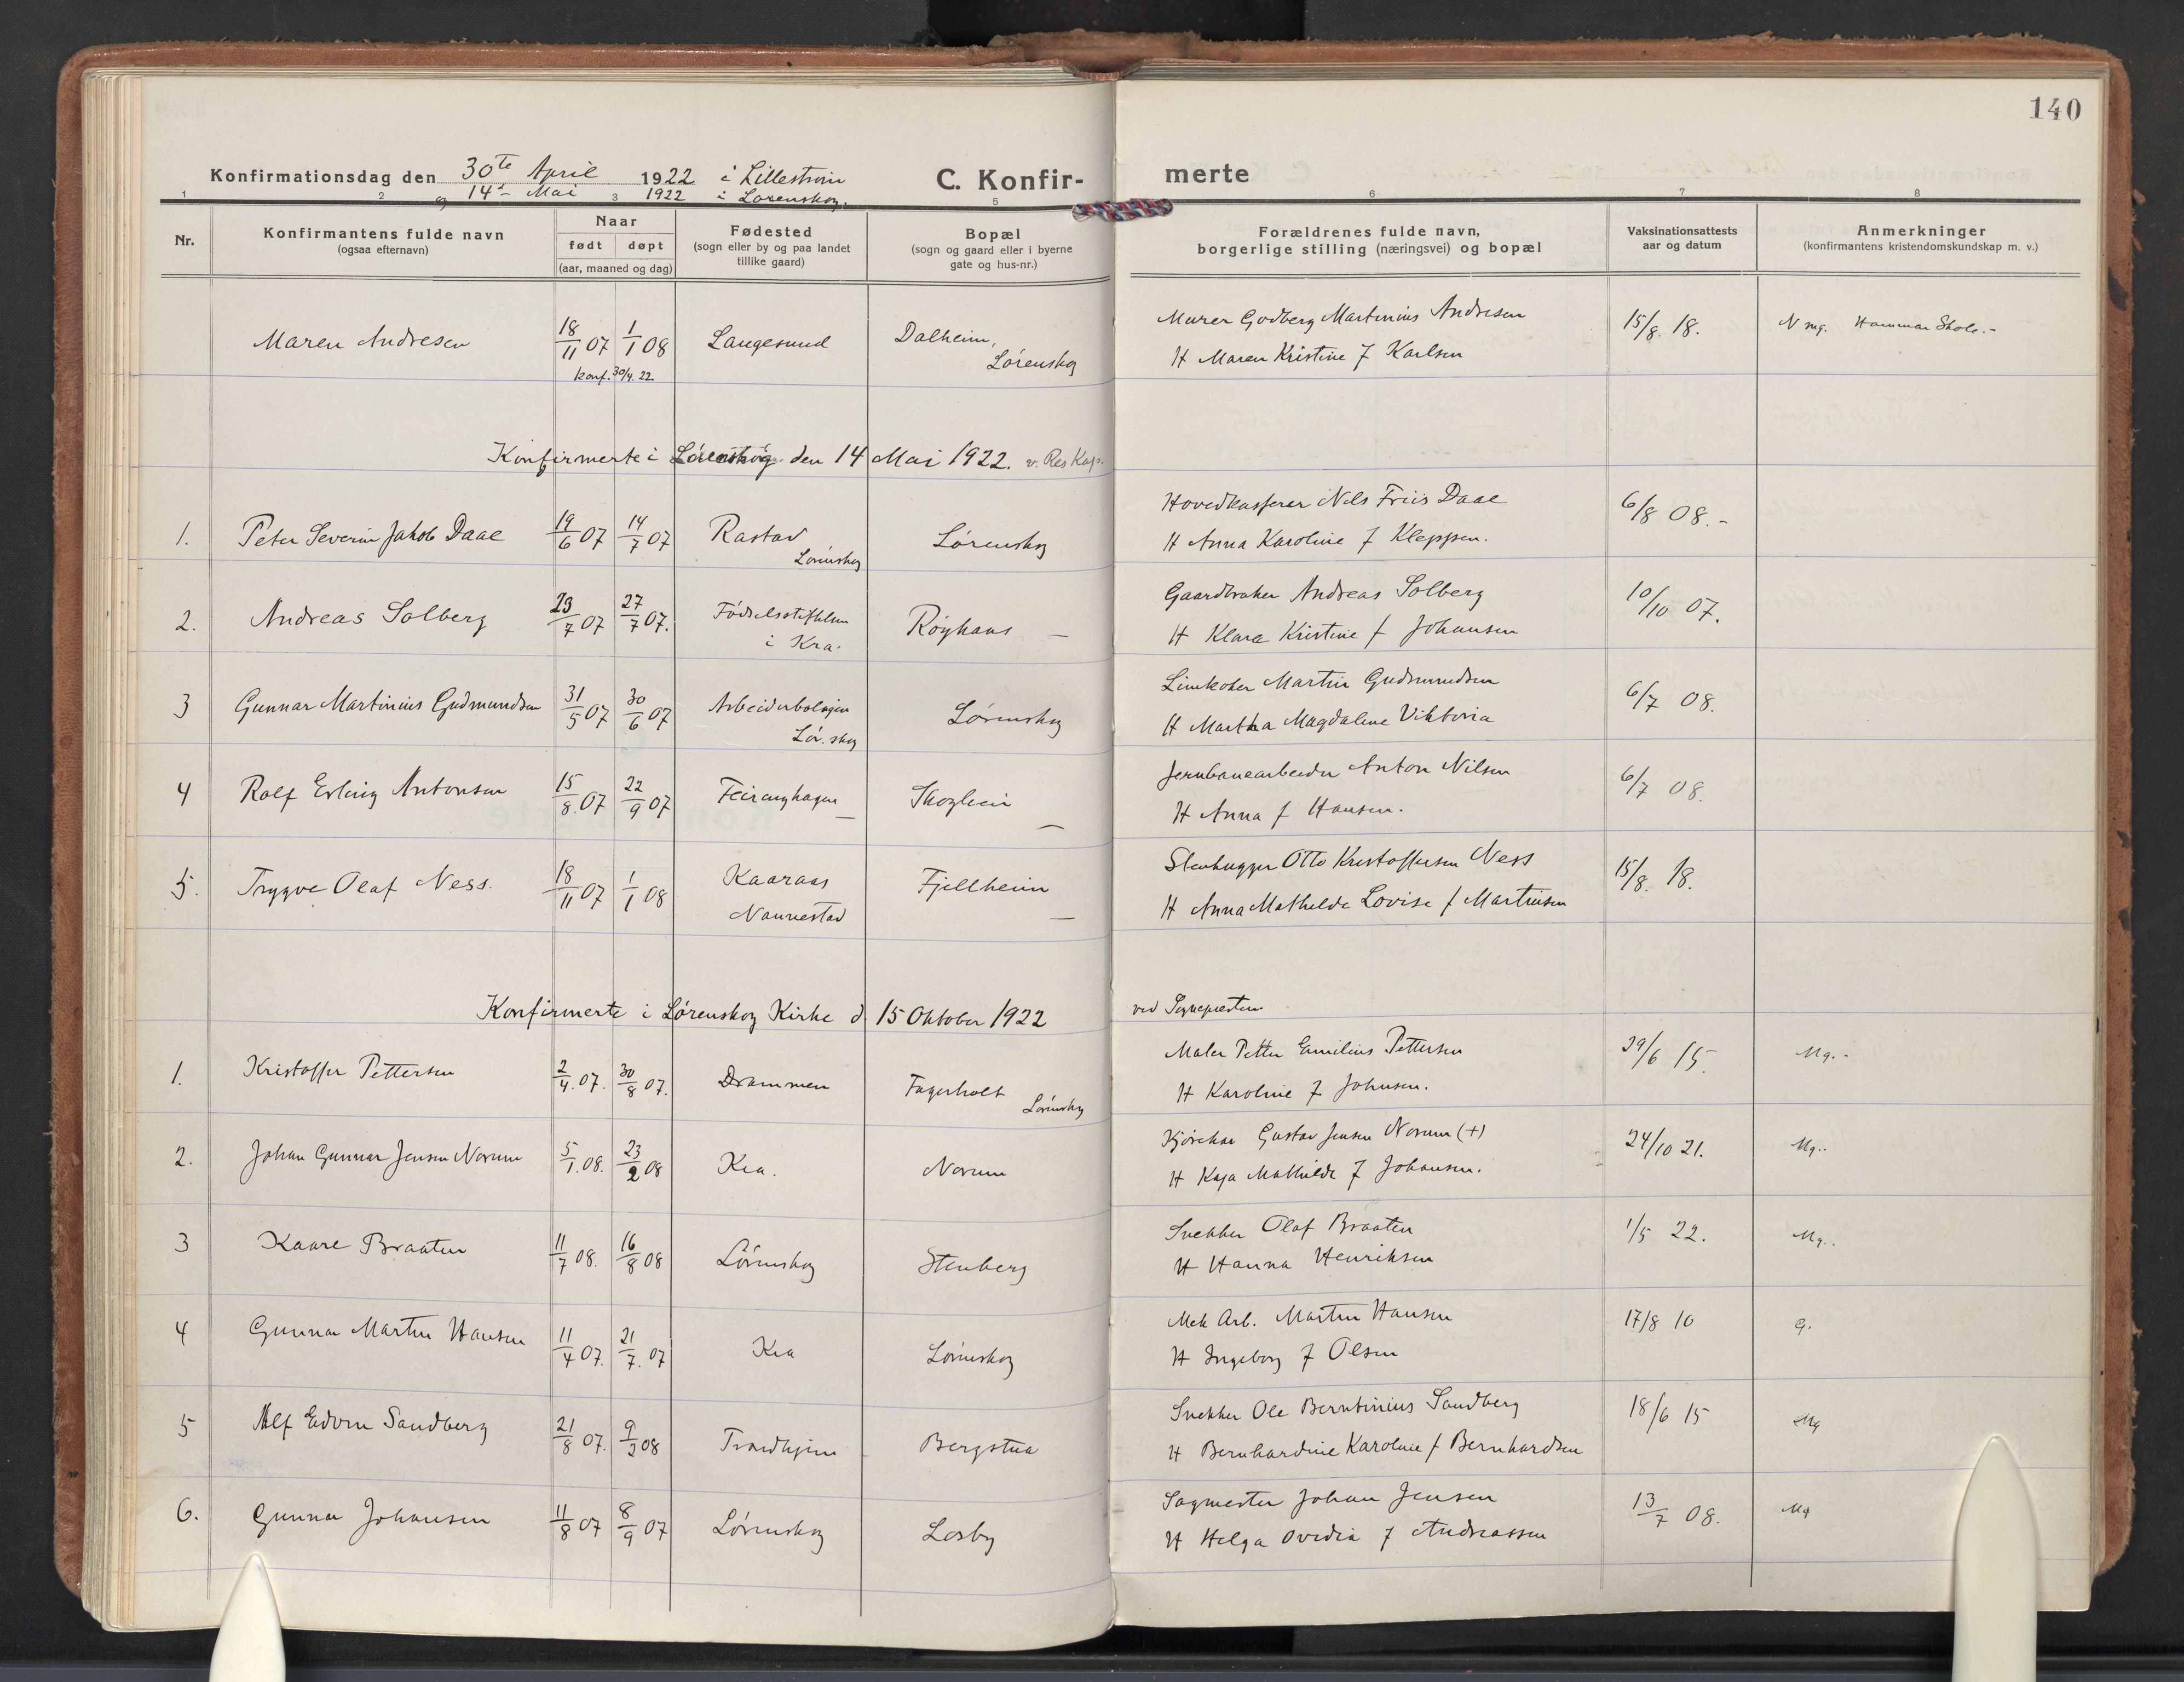 140
Konfirmationsdag den 30te April 1922 i Lillestrøm
og 14de Mai 1922 i Lørenskog.
C. Konfir-merte
1 2 3 5 6 7 8
Nr.
Konfirmantens fulde navn
(ogsaa efternavn)
Naar
født døpt
(aar, maaned og dag)
Fødested
(sogn eller by og paa landet
tillike gaard)
Bopæl
(sogn og gaard eller i byerne
gate og hus-nr.)
Forældrenes fulde navn,
borgerlige stilling (næringsvei) og bopæl
Vaksinationsattests
aar og datum
Anmerkninger
(konfirmantens kristendomskundskap m. v.)
Maren Andresen 18/11 07 1/1 08 Langesund Dalheim, Lørenskog
konf. 30/4. 22.
Murer Godberg Martinius Andresen 15/8. 18. N mg. Hammar Skole.-
H Maren Kristine f Karlsen
Konfirmerte i Lørenskog den 14 Mai 1922. v. Res Kap.
1. Peter Severin Jakob Daae 19/6 07 14/7 07 Rastad Lørenskog Lørenskog
Hovedkasserer Nils Friis Daae 6/8 08.-
H Anna Karoline f Kleppen.
2. Andreas Solberg 23/7 07 27/7 07. Fødselsstiftelsen i Kra. Røykaas —
Gaardbruker Andreas Solberg 10/10 07.
H Klara Kristine f Johansen
3 Gunnar Martinius Gudmundsen 31/5 07 30/6 07 Arbeiderboligen Lør.skog Lørenskog
Limkoker Martin Gudmundsen 6/7 08.
H Martha Magdalene Viktoria
4 Rolf Erling Antonsen 15/8. 07 22/9 07 Feiringhagen — Skoglein —
Jernbanearbeider Anton Nilsen 6/7 08.
H Anna f Hansen.
5. Trygve Olaf Ness. 18/11 07 1/1 08 Kaaraas Nannestad Fjellheim —
Stenhugger Otto Kristoffersen Ness 15/8. 18.
H Anna Mathilde Lovise f Martinsen
Konfirmerte i Lørenskog Kirke d. 15 Oktober 1922 ved Sognepresten
1. Kristoffer Pettersen 2/4. 07. 30/8 07. Drammen Fagerholt Lørenskog
Maler Petter Emilius Pettersen 29/6 15. Mg.-
H Karoline f Johnsen.
2. Johan Gunnar Jensen Norum 5/1. 08. 23/2 08 Kra. Norum
Kjørekar Gustav Jensen Norum (+) 24/10 21. Mg..
H Kaja Mathilde f Johansen.
3 Kaare Braaten 11/7 08. 16/8 08 Lørenskog Stenberg
Snekker Olaf Braaten 1/5 22. Mg..
H Hanna Henriksen
4 Gunnar Martin Hansen 11/4 07. 21/7. 07 Kra Lørenskog
Mek Arb. Martin Hansen 17/8 10 G.
H Ingeborg f Olsen
5 Alf Edvin Sandberg 21/8 07. 9/2 08 Trondhjem Bergstua
Snekker Ole Berntinius Sandberg 18/6 15 Mg
H Bernhardine Karoline f Bernhardsen
6. Gunnar Johansen 11/8 07 8/9 07 Lørenskog Losby
Sagmester Johan Jensen 13/7 08. Mg
H Helga Ovidia f Andreassen